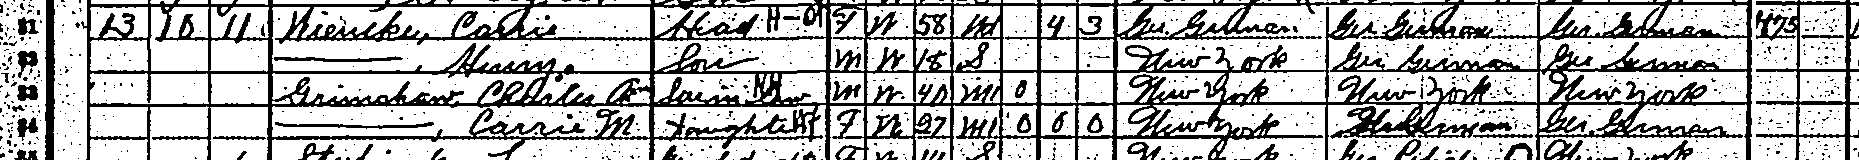 31 13 10 11 Wiencke, Carrie Head F W 58 Wd 4 3 Ger. German Ger. German Ger. German 475
32 ———, Henry Son M W 18 S New York Ger German Ger German
33 Grimshaw, Charles Son in law M W 40 M1 0 New York New York New York
34 ———, Carrie M Daughter F W 27 M1 0 0 0 New York Ger German Ger. German